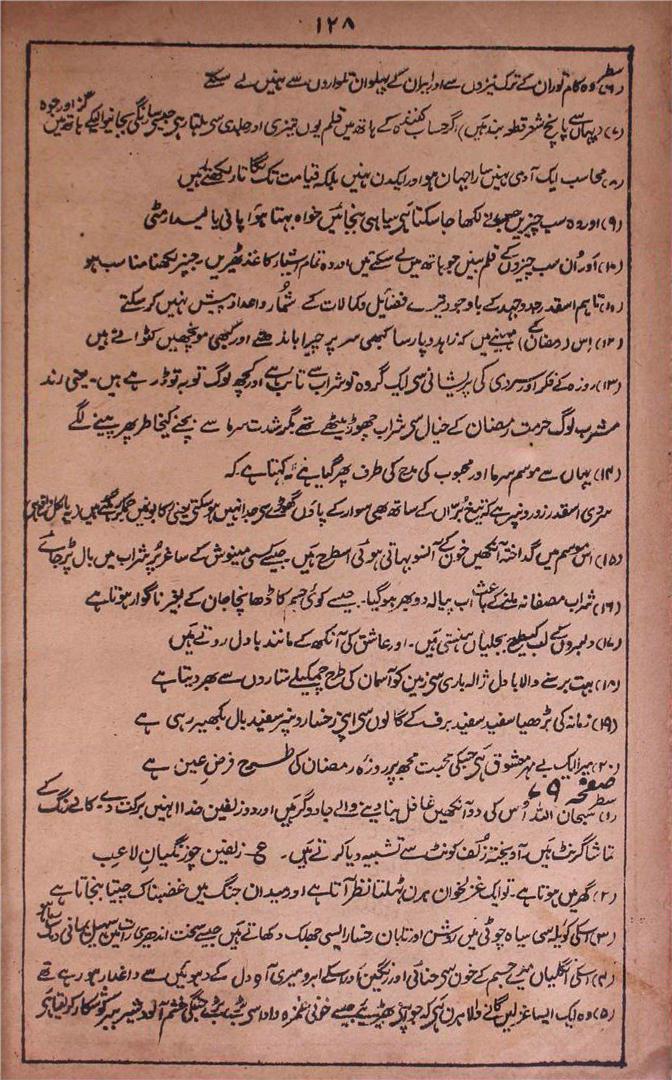 ۱۲۸
سطر (۶) وہ کام توران کے ترک نیزوں سے اور ایران کے پہلوان تلواروں سے نہیں لے سکتے
(۷) (یہاں سے پانچ شعر قطعہ بند ہیں) اگر حساب کنندہ کے ہاتھ میں قلم یوں تیزی اور جلدی سے چلتا رہے جیسے سارنگی بجانیوالیکے ہاتھ میں گز اور جوہ
(۸) محاسب ایک آدمی نہیں سارا جہان ہو اور ایکدن نہیں بلکہ قیامت تک لگاتار لکھتے رہیں
(۹) اور وہ سب چیزیں جن سے لکھا جا سکتا ہے سیاہی بنجائیں خواہ بہتا ہوا پانی یا لیسدار مٹی
(۱۰) اور ان سب چیزوں کے قلم بنیں جو ہاتھ میں لے سکتے ہیں اور وہ تمام اشیار کاغذ ٹھیریں۔ جنپر لکھنا مناسب ہو
(۱۱) تاہم اسقدر جد و جہد کے باوجود تیرے فضایل و کمالات کے شمار و اعداد پیش نہیں کر سکتے
(۱۲) اس (رمضان کے) مہینے میں کہ زاہد و پارسا کبھی سر پر چیرا باندھتے اور کبھی مونچھیں کٹواتے ہیں
(۱۳) روزہ کے فکر اور سردی کی پریشانی سے ایک گروہ تو شراب سے تائب ہے اور کچھ لوگ توبہ توڑ رہے ہیں۔ یعنی رند
مشرب لوگ حرمت رمضان کے خیال سے شراب چھوڑ بیٹھے تھے مگر شدت سرما سے بچنے کیخاطر پھر پینے لگے
(۱۴) یہاں سے موسم سرما اور محبوب کی مدح کی طرف پھر گیا ہے کہتا ہے کہ
سردی اسقدر زور و نپر ہے کہ تیغ براں کے ساتھ بھی سوار کے پاؤں گھوڑے سے جدا نہیں ہو سکتے یعنی رکابونمیں جکڑے گئے ہیں
(۱۵) اس موسم میں گداختہ آنکھیں خون کے آنسو بہاتی ہوئی اسطرح ہیں جیسے کسی مینوش کے ساغر پر شراب میں بال پڑ جائے
(۱۶) شراب مصفا نہ ملنے کے باعث اب پیالہ دوبھر ہو گیا۔ جیسے کوئی جسم کا ڈھانچا جان کے بغیر ناگوار ہوتا ہے
(۱۷) دلبروں کے لب کیطرح بجلیاں ہنستی ہیں۔ اور عاشق کی آنکھ کے مانند بادل روتے ہیں
(۱۸) بہت برسنے والا بادل ژالہ باری سے زمین کو آسمان کی طرح چمکیلے ستاروں سے بھر دیتا ہے
(۱۹) زمانہ کی بڑھیا سفید سفید برف کے گالوں سے اپنے رخسار و نپر سفید بال بکھیر رہی ہے
(۲۰) میرا ایک بے مہر معشوق ہے جسکی محبت مجھ پر روزہ رمضان کی طرح فرض عین ہے
صفحہ ۷۹
سطر (۱) سبحان اللہ اس کی دو آنکھیں غافل بنا دینے والے جادوگر ہیں اور دو زلفیں خدا انہیں برکت دے۔ کالے رنگ کے
تماشا گر نٹ ہیں۔ آویختہ زلف کو نٹ سے تشبیہ دیا کرتے ہیں۔ ع زلفین چو زنگیان لاعب
(۲) گھر میں ہوتا ہے۔ تو ایک غزلخوان ہرن ٹہلتا نظر آتا ہے اور میدان جنگ میں غضبناک چیتا بنجاتا ہے
(۳) اسکی کویلہ سی سیاہ چوٹی میں روشن اور تابان رخسار ایسی جھلک دکھاتے ہیں جیسے سخت اندھیری رات میں سہیل یمانی
(۴) اسکی انگلیاں میرے جسم کے خون سے حنائی اور رنگین اور اسکے ابرو میری آہ دل کے دھوئیں سے داغدار ہو رہے تھے
(۵) وہ ایک ایسا غزلیں گانے والا ہرن ہے کہ جو اپنے خونی غمزہ و ادا سے بڑے بڑے جنگی خشم آلود شیر ببر کو شکار کر لیتا ہے